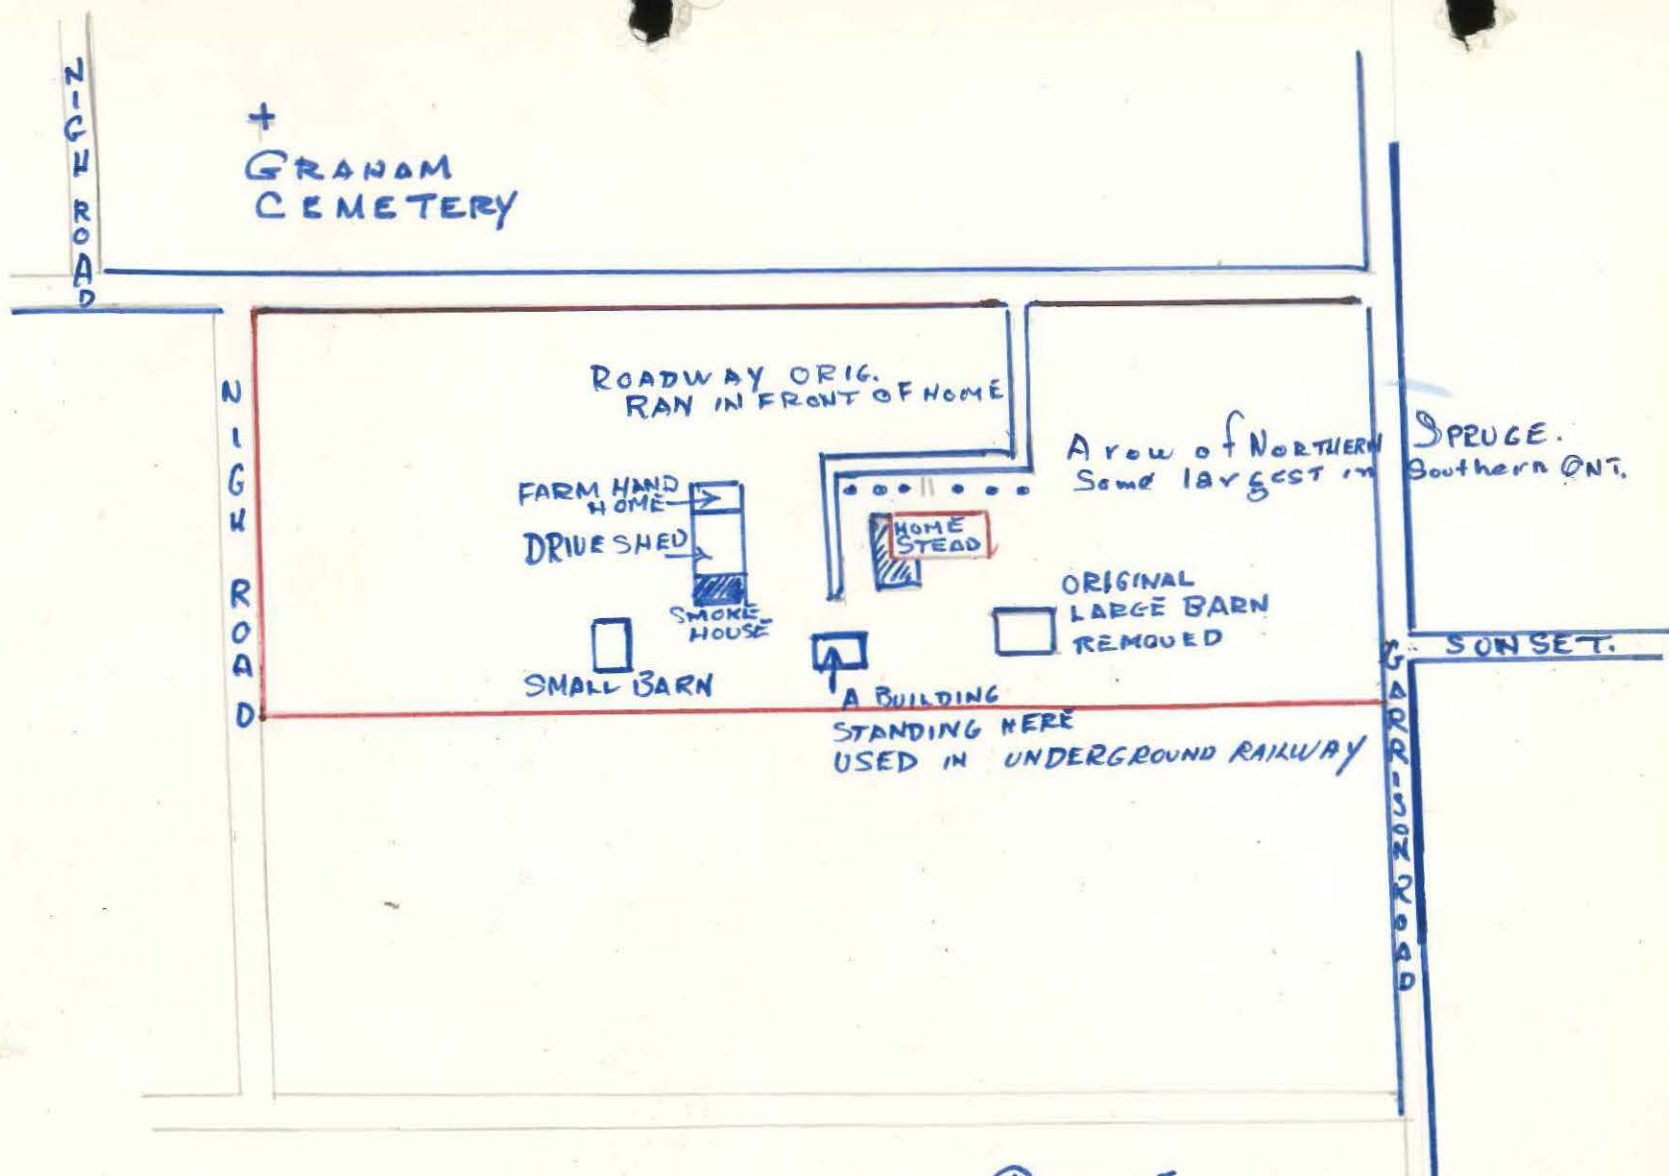 NIGH ROAD
+
GRAHAM
CEMETERY
NIGH ROAD
ROADWAY ORIG.
RAN IN FRONT OF HOME
A row of NORTHERN SPRUCE.
Some largest in Southern ONT.
FARM HAND
HOME
DRIVE SHED
SMOKE
HOUSE
HOME
STEAD
SMALL BARN
ORIGINAL
LARGE BARN
REMOVED
A BUILDING
STANDING HERE
USED IN UNDERGROUND RAILWAY
SUNSET.
GARRISON ROAD